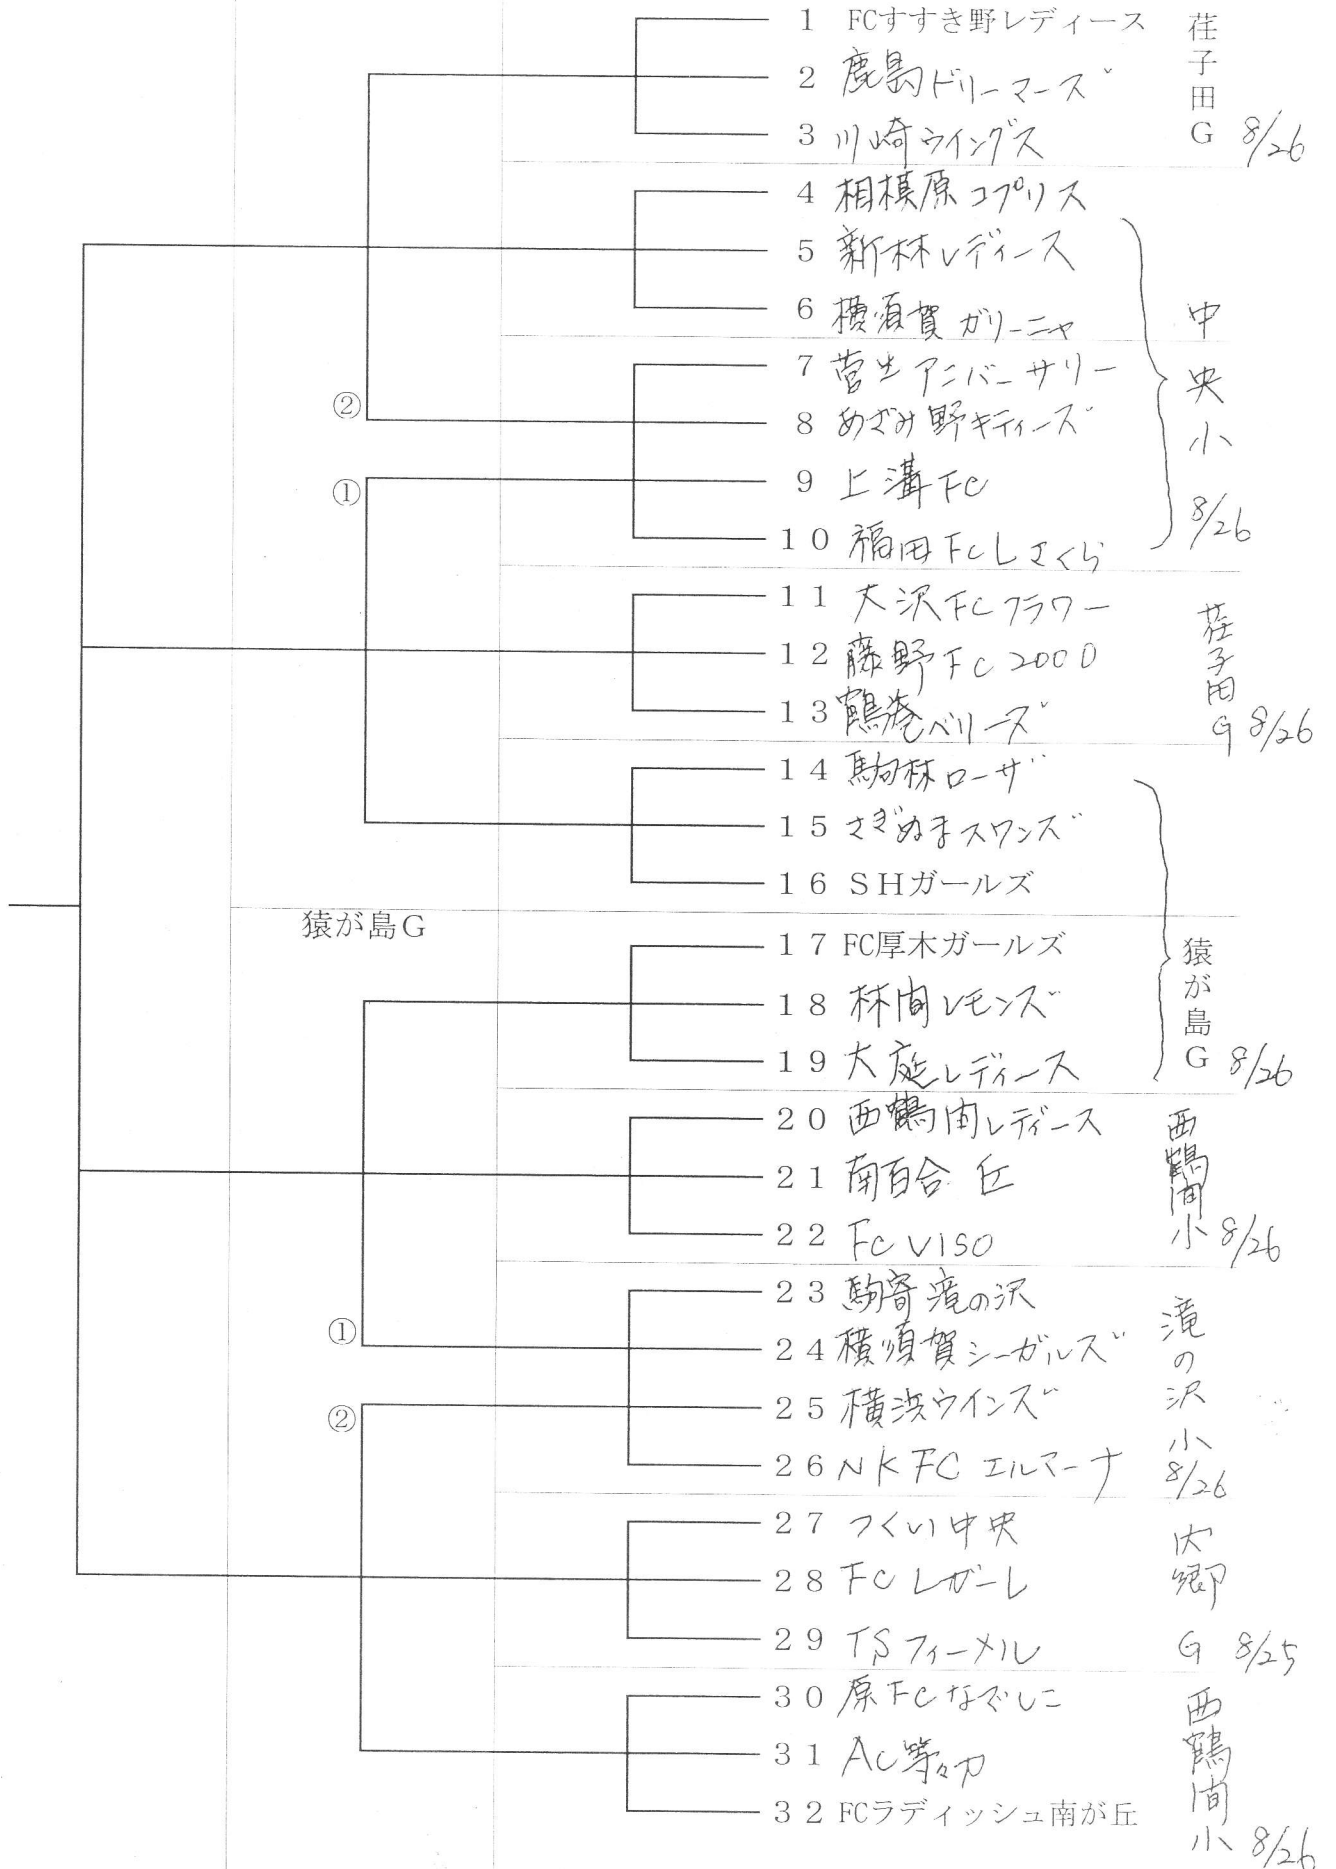 1 FCすすき野レディース
2 鹿島ドリーマーズ
3 川崎ウイングス
荏子田G 8/26
4 相模原コプリス
5 新林レディース
6 横須賀ガリーニャ
7 菅生アニバーサリー
② 8 あざみ野キティーズ
① 9 上溝FC
10 福田FCLさくら
中央小 8/26
11 大沢FCフラワー
12 藤野FC2000
13 鶴巻ベリーズ
荏子田G 8/26
14 駒林ローザ
15 さぎぬまスワンズ
16 SHガールズ
猿が島G
17 FC厚木ガールズ
18 林間レモンズ
19 大庭レディース
猿が島G 8/26
20 西鶴間レディース
21 南百合丘
22 FC VISO
西鶴間小 8/26
23 駒寄滝の沢
① 24 横須賀シーガルズ
② 25 横浜ウインズ
26 NKFCエルマーナ
滝の沢小 8/26
27 つくい中央
28 FCレガーレ
29 TSフィーメル
内郷G 8/25
30 原FCなでしこ
31 AC等々力
32 FCラディッシュ南が丘
西鶴間小 8/26